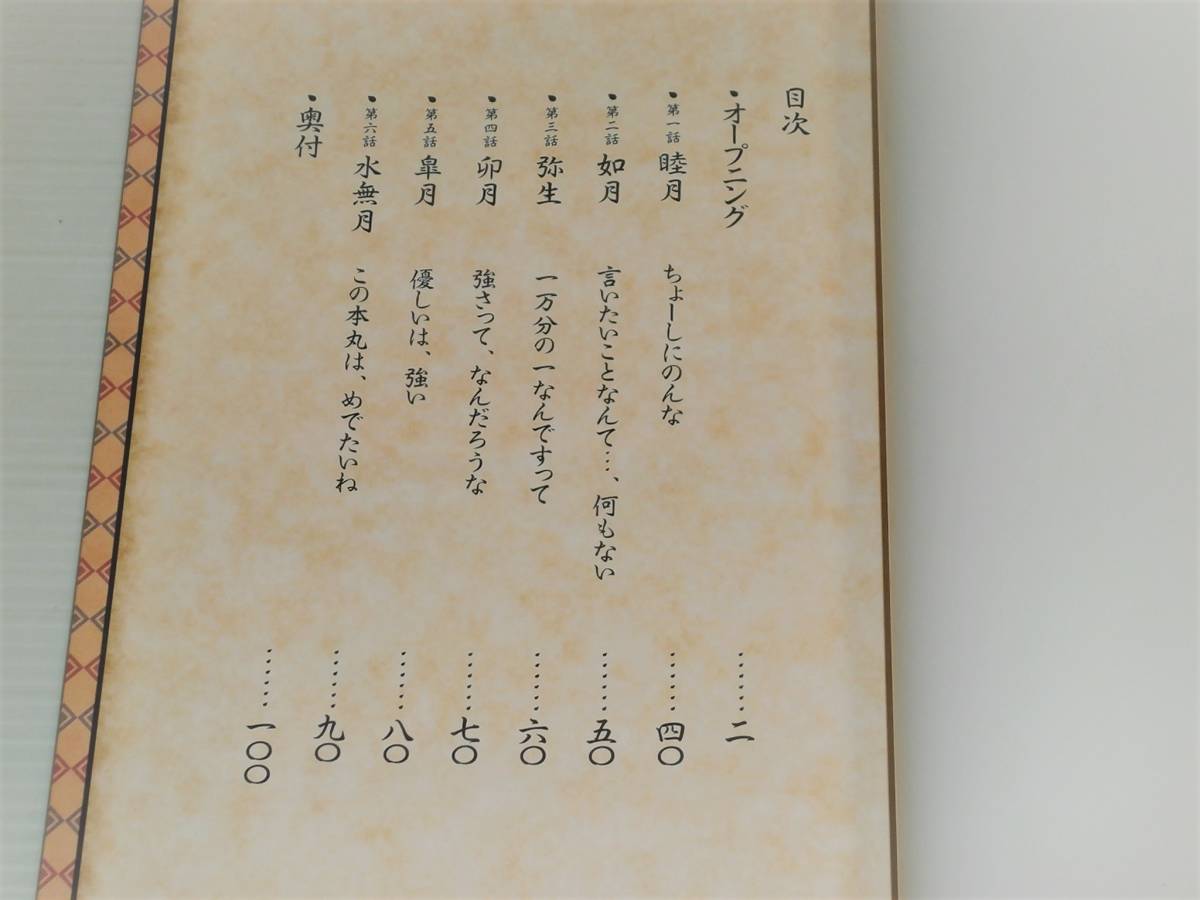 目次
・オープニング……二
・第一話 睦月 ちょーしにのんな……四〇
・第二話 如月 言いたいことなんて…、何もない……五〇
・第三話 弥生 一万分の一なんですって……六〇
・第四話 卯月 強さって、なんだろうな……七〇
・第五話 皐月 優しいは、強い……八〇
・第六話 水無月 この本丸は、めでたいね……九〇
・奥付……一〇〇